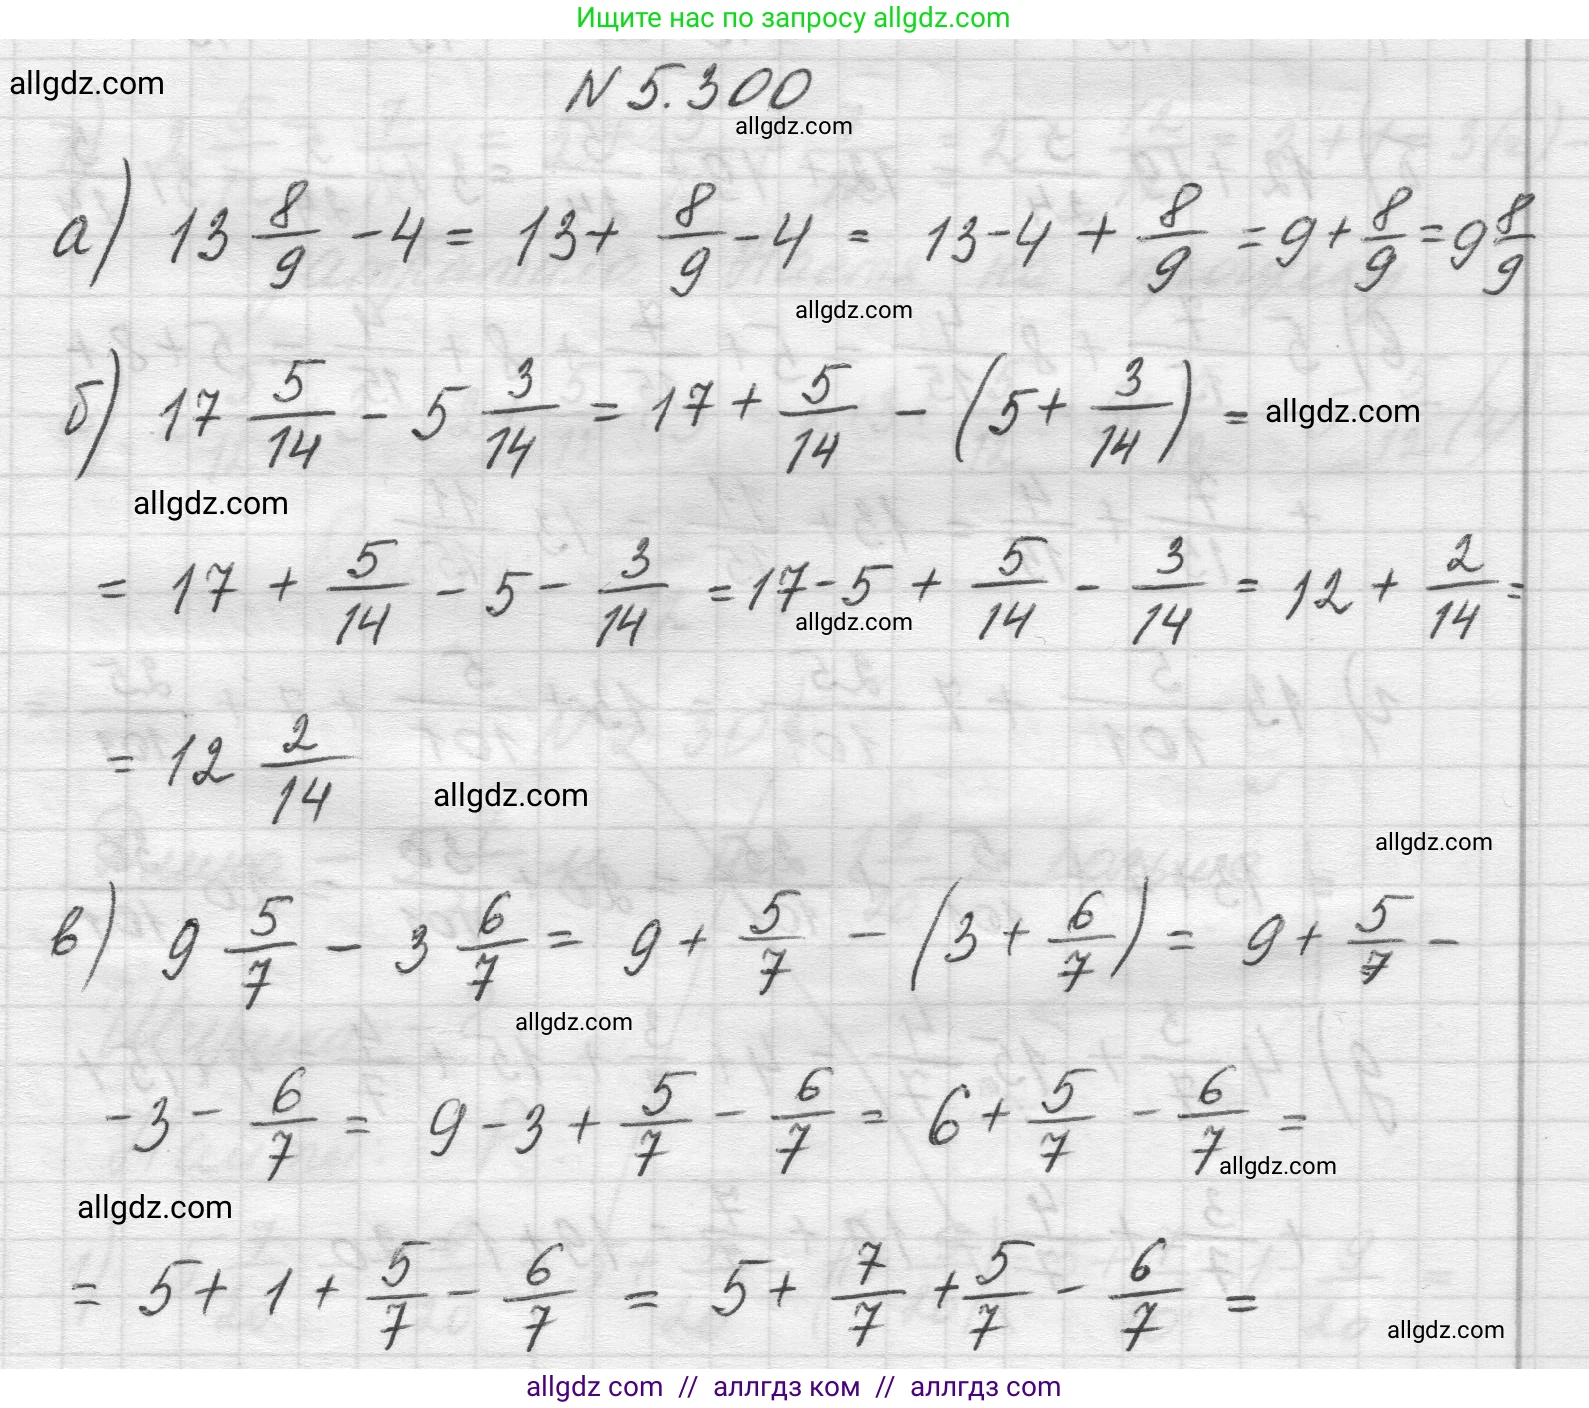 Ищите нас по запросу allgdz.com
allgdz.com
N 5.300
allgdz.com
а) 13 8/9 - 4 = 13 + 8/9 - 4 = 13 - 4 + 8/9 = 9 + 8/9 = 9 8/9
allgdz.com
б) 17 5/14 - 5 3/14 = 17 + 5/14 - (5 + 3/14) = allgdz.com
allgdz.com
= 17 + 5/14 - 5 - 3/14 = 17 - 5 + 5/14 - 3/14 = 12 + 2/14 =
allgdz.com
= 12 2/14
allgdz.com
allgdz.com
в) 9 5/7 - 3 6/7 = 9 + 5/7 - (3 + 6/7) = 9 + 5/7 -
allgdz.com
- 3 - 6/7 = 9 - 3 + 5/7 - 6/7 = 6 + 5/7 - 6/7 =
allgdz.com
allgdz.com
= 5 + 1 + 5/7 - 6/7 = 5 + 7/7 + 5/7 - 6/7 =
allgdz.com
allgdz com // аллгдз ком // аллгдз com